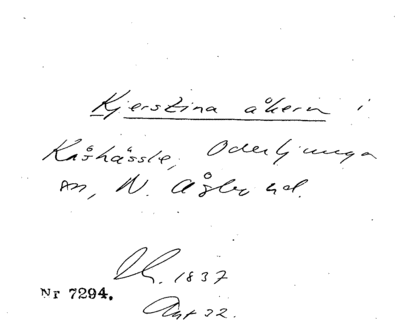 Kjerstina åkern i
Kråshässle, Oderljunga
sn, N. Åsbo hd.
1837
Nr 7294.
Akt 32.